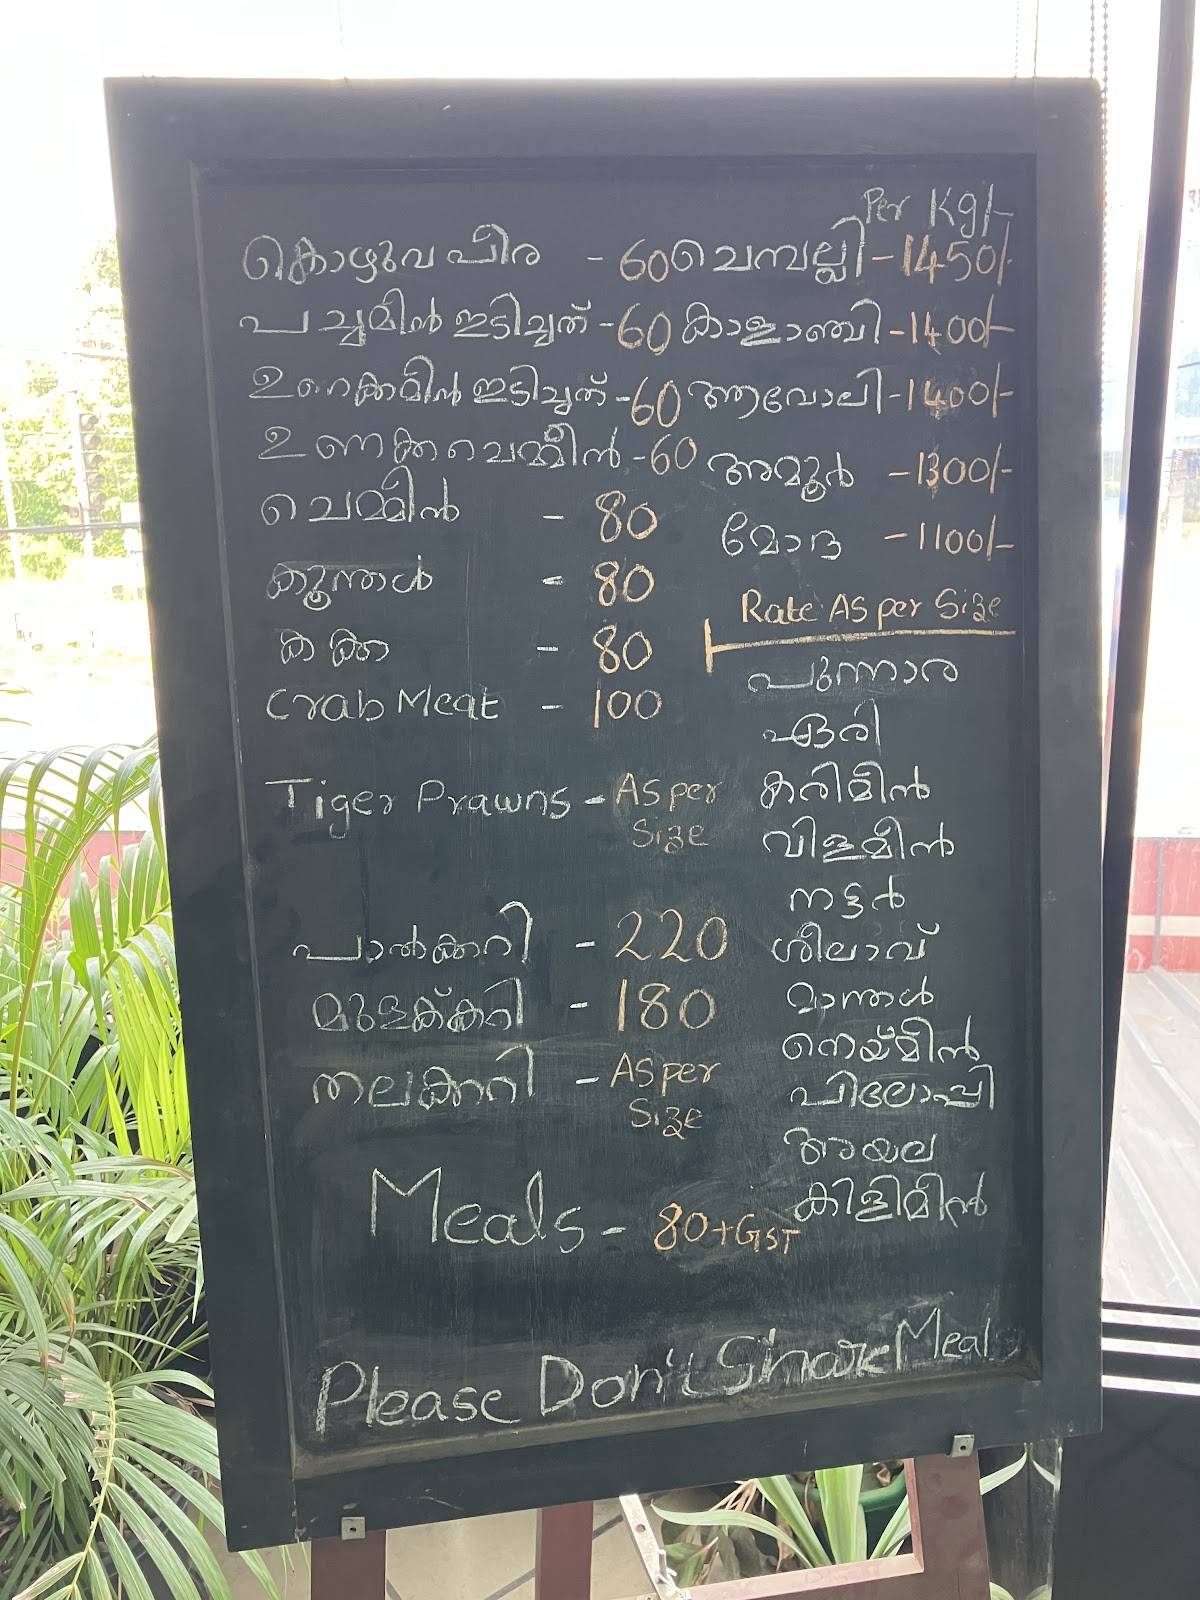 Per Kg/-
കൊഴുവ പീര - 60 ചെമ്പല്ലി - 1450/-
പച്ചമീൻ ഇടിച്ചത് - 60 കാളാഞ്ചി - 1400/-
ഉണക്കമീൻ ഇടിച്ചത് - 60 ആവോലി - 1400/-
ഉണക്ക ചെമ്മീൻ - 60 അമൂർ - 1300/-
ചെമ്മീൻ - 80 മോദ - 1100/-
കൂന്തൾ - 80
Rate As per Size
കക്ക - 80
പുന്നാര
Crab Meat - 100
ഏരി
Tiger Prawns - As per Size
കരിമീൻ
വിളമീൻ
നട്ടർ
പാൽക്കറി - 220
ശീലാവ്
മുളക്കറി - 180
മാന്തൾ
നെയ്മീൻ
തലക്കറി - As per Size
പിലോപ്പി
അയല
കിളിമീൻ
Meals - 80+GST
Please Don't Share Meals